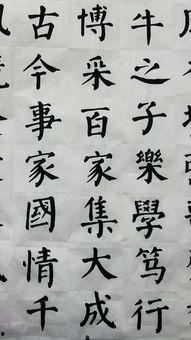 牛之子樂學篤行
博采百家集大成
古今事家國情千